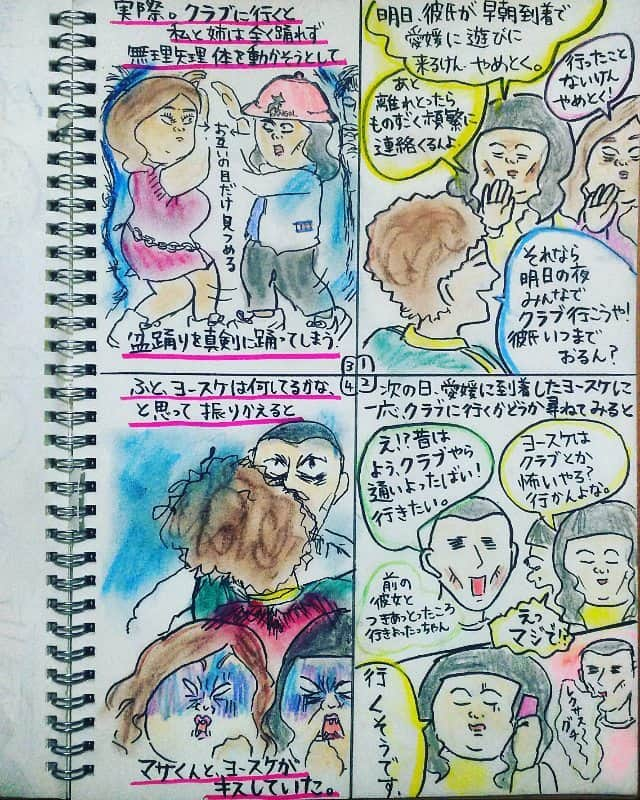 明日、彼氏が早朝到着で
愛媛に遊びに
来るけん やめとく。
行ったこと
ないけん
やめとく!
あと
離れとったら
ものすごく頻繁に
連絡くるんよ。
それなら
明日の夜
みんなで
クラブ行こうや!
彼氏いつまで
おるん?
①
次の日、愛媛に到着したヨースケに
一応、クラブに行くかどうか尋ねてみると
え!?昔は
よう、クラブやら
通いよったばい!
行きたい。
ヨースケは
クラブとか
怖いやろ?
行かんよな。
前の
彼女と
つきあっとったころ
行きよったっちゃん
えっ
マジで!?
行くそうです。
②
実際。クラブに行くと
私と姉は全く踊れず
無理矢理体を動かそうとして
お互いの目だけ見つめる
盆踊りを真剣に踊ってしまう
③
ふと、ヨースケは何してるかな、
と思って振りかえると
マサくんと、ヨースケが
キスしていた。
④